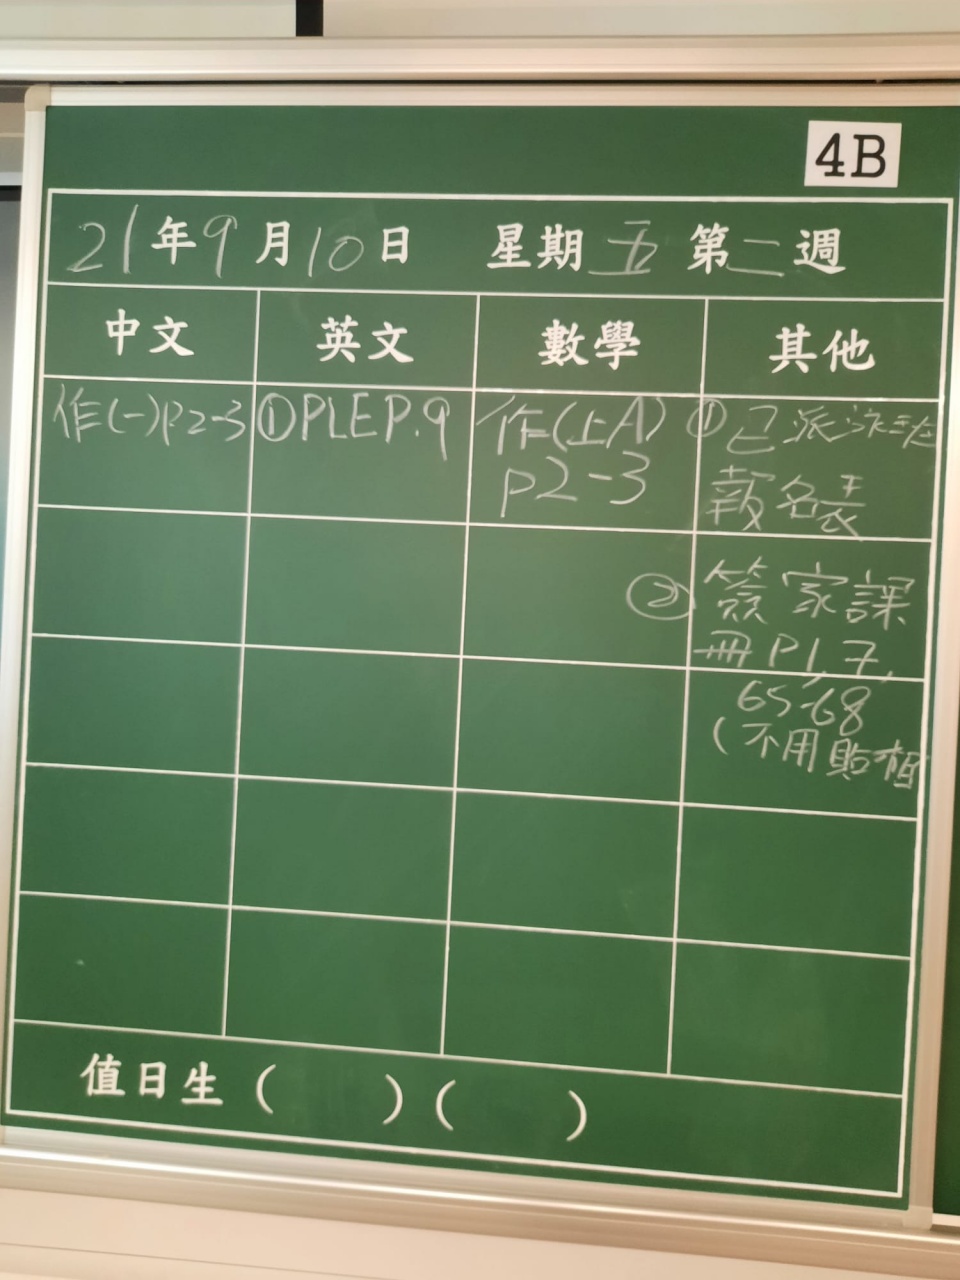 4B
21年9月10日 星期五 第二週
中文 英文 數學 其他
作(一)P2-3 ①PLE P.9 作(上A) ①已派泳班
p2-3 報名表
② 簽家課
冊P1,7,
65-68
(不用貼相
值日生 ( ) ( )